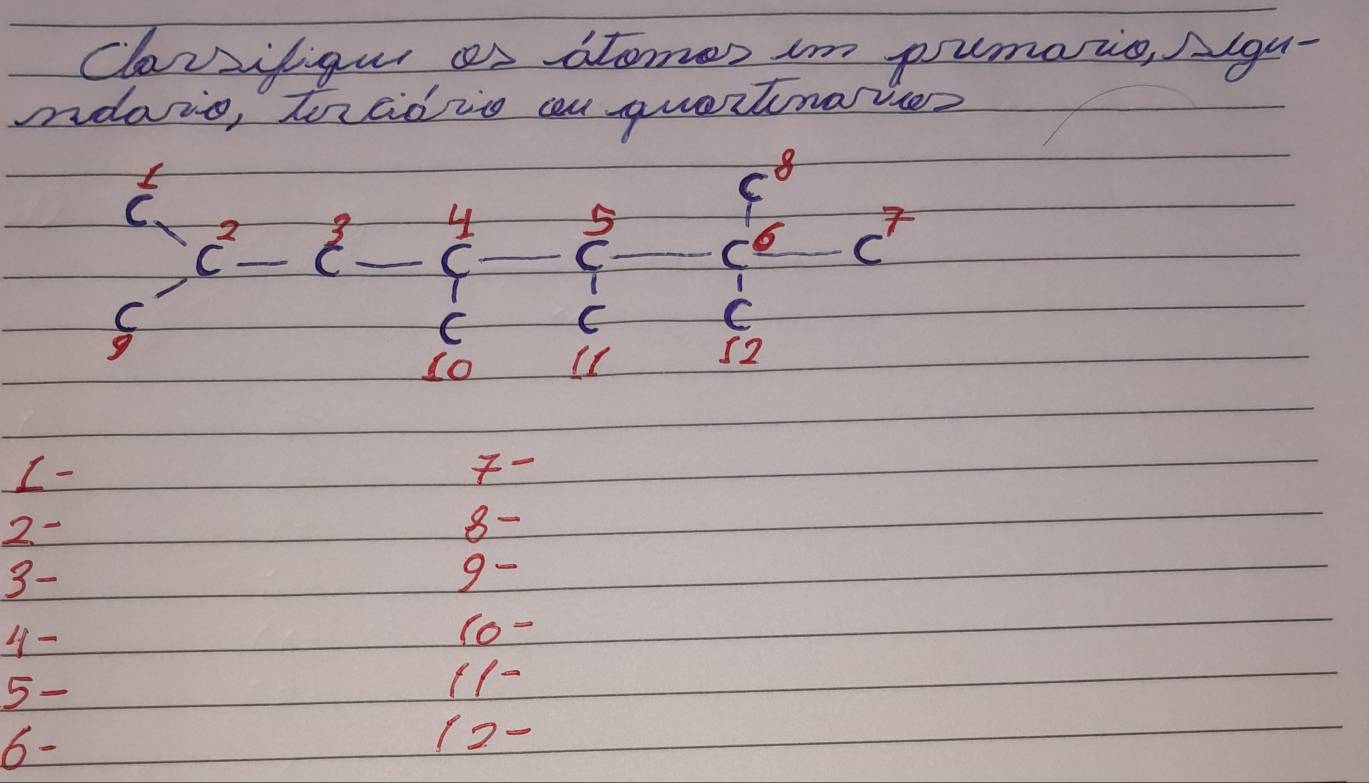 Classifique os átomos em primario, segu-
ndario, terciário ou quartenarios
1 8
C C
2 3 4 5 6 7
C — C — C — C — C — C
C C C C
9 10 11 12
1- 7-
2- 8-
3- 9-
4- 10-
5- 11-
6- 12-